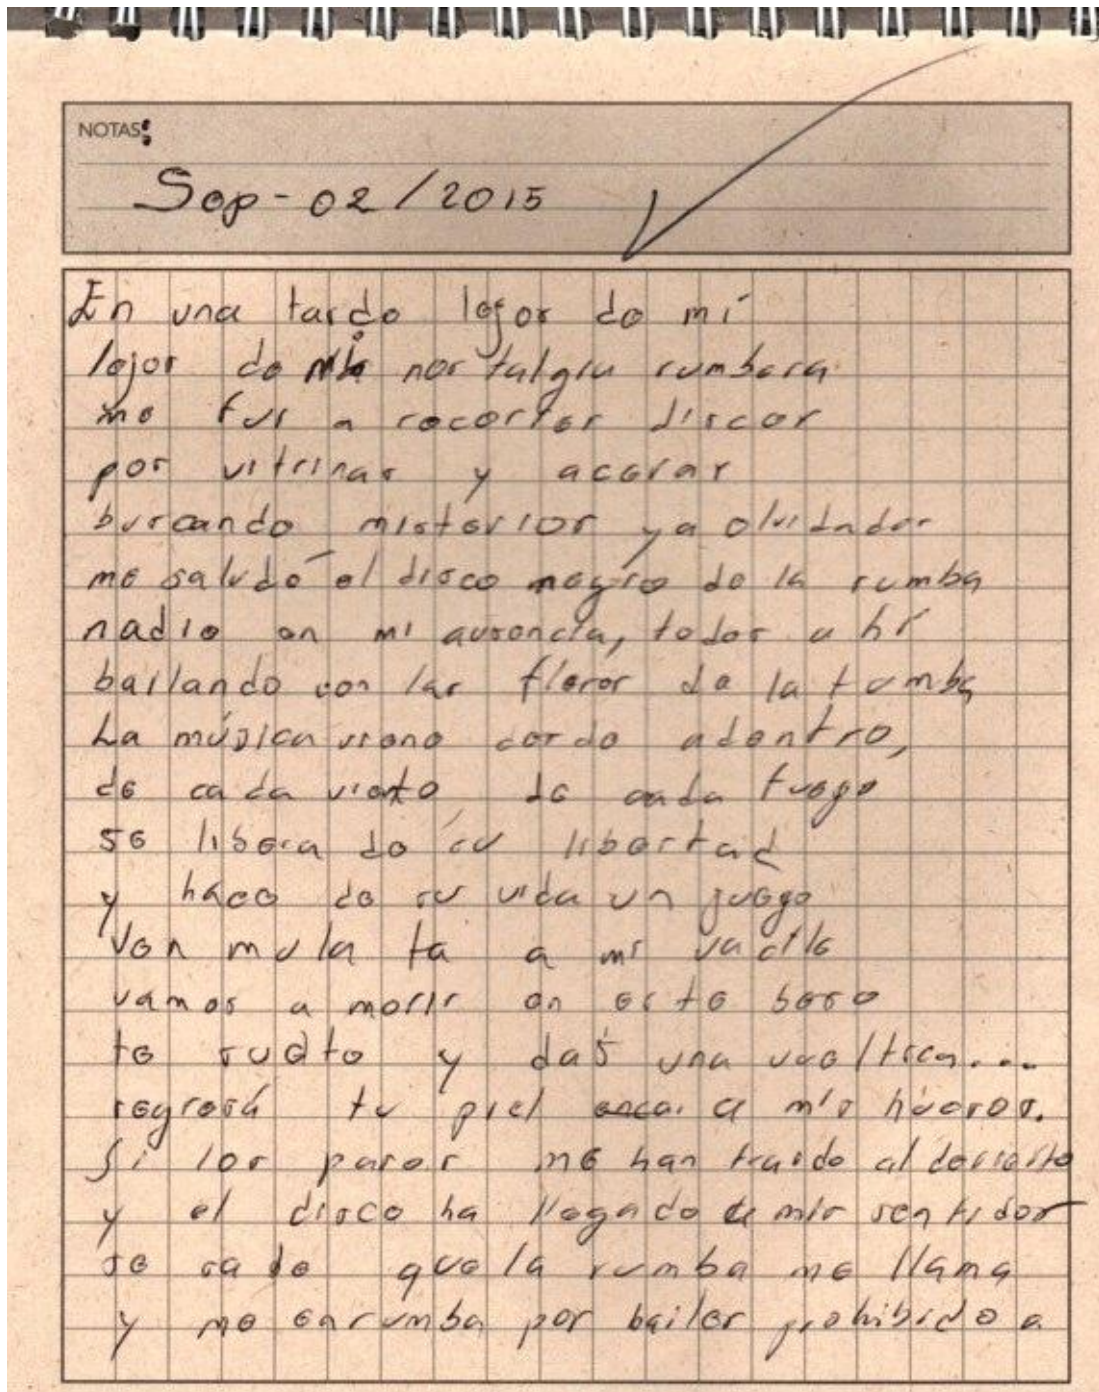 NOTAS:
Sep-02/2015
En una tarde lejos de mí
lejos de mis nostalgia rumbera
me fui a recorrer discos
por vitrinas y aceras
buscando misterios ya olvidados
me saludó el disco negro de la rumba
nadie en mi ausencia, todos ahí
bailando con las flores de la tumba
La música viene desde adentro,
de cada viento de cada fuego
se libera de su libertad
y hace de su vida un juego
Ven mulata a mi vacile
vamos a morir en este beso
te suelto y das una vueltica...
regresa tu piel a mis huesos.
Si los pasos me han traído al desierto
y el disco ha llegado a mis sentidos
se que la rumba me llama
y me por bailar prohibido a